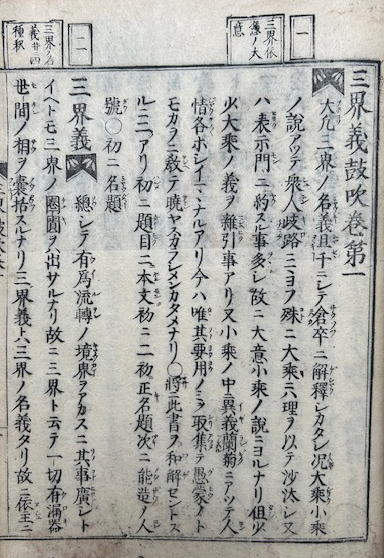 一
三界依
意ノ大
意
二
三界ノ名
義廿四
種釈
三界義鼓吹卷第一
大凡三界ノ名義且千ニシテ倉卒ニ解釋シカタシ况大乘小乘
ノ說アツテ衆人歧路ニヨフ殊ニ大乘ハ理ヲ以テ沙汰シ又
ハ表示門ニ約スル事多シ故ニ大意小乘ノ說ニヨルナリ但少
火大乘ノ義ヲ雜引事アリ又小乘ノ中ニ異義蘭菊ニアツテ人
情各ホシイマヽナルアリ今ハ唯其要用ノミヲ取集テ愚蒙ノト
モカラニ敎テ曉ヤスカラシメンカタメナリ〇將ニ此書ヲ和解セントス
ルニ二アリ初ニ題目二本文初ニ二初正名題次ニ能造ノ人
號〇初ニ名題
三界義 總シテ有爲流轉ノ境界ヲアカスニ其事廣シト
イヘトモ三界ノ圈圓ヲ出サルナリ故ニ三界ト云テ一切有漏器
世間ノ相ヲ囊括スルナリ三界義トハ三界ノ名義タリ故ニ依主ニ